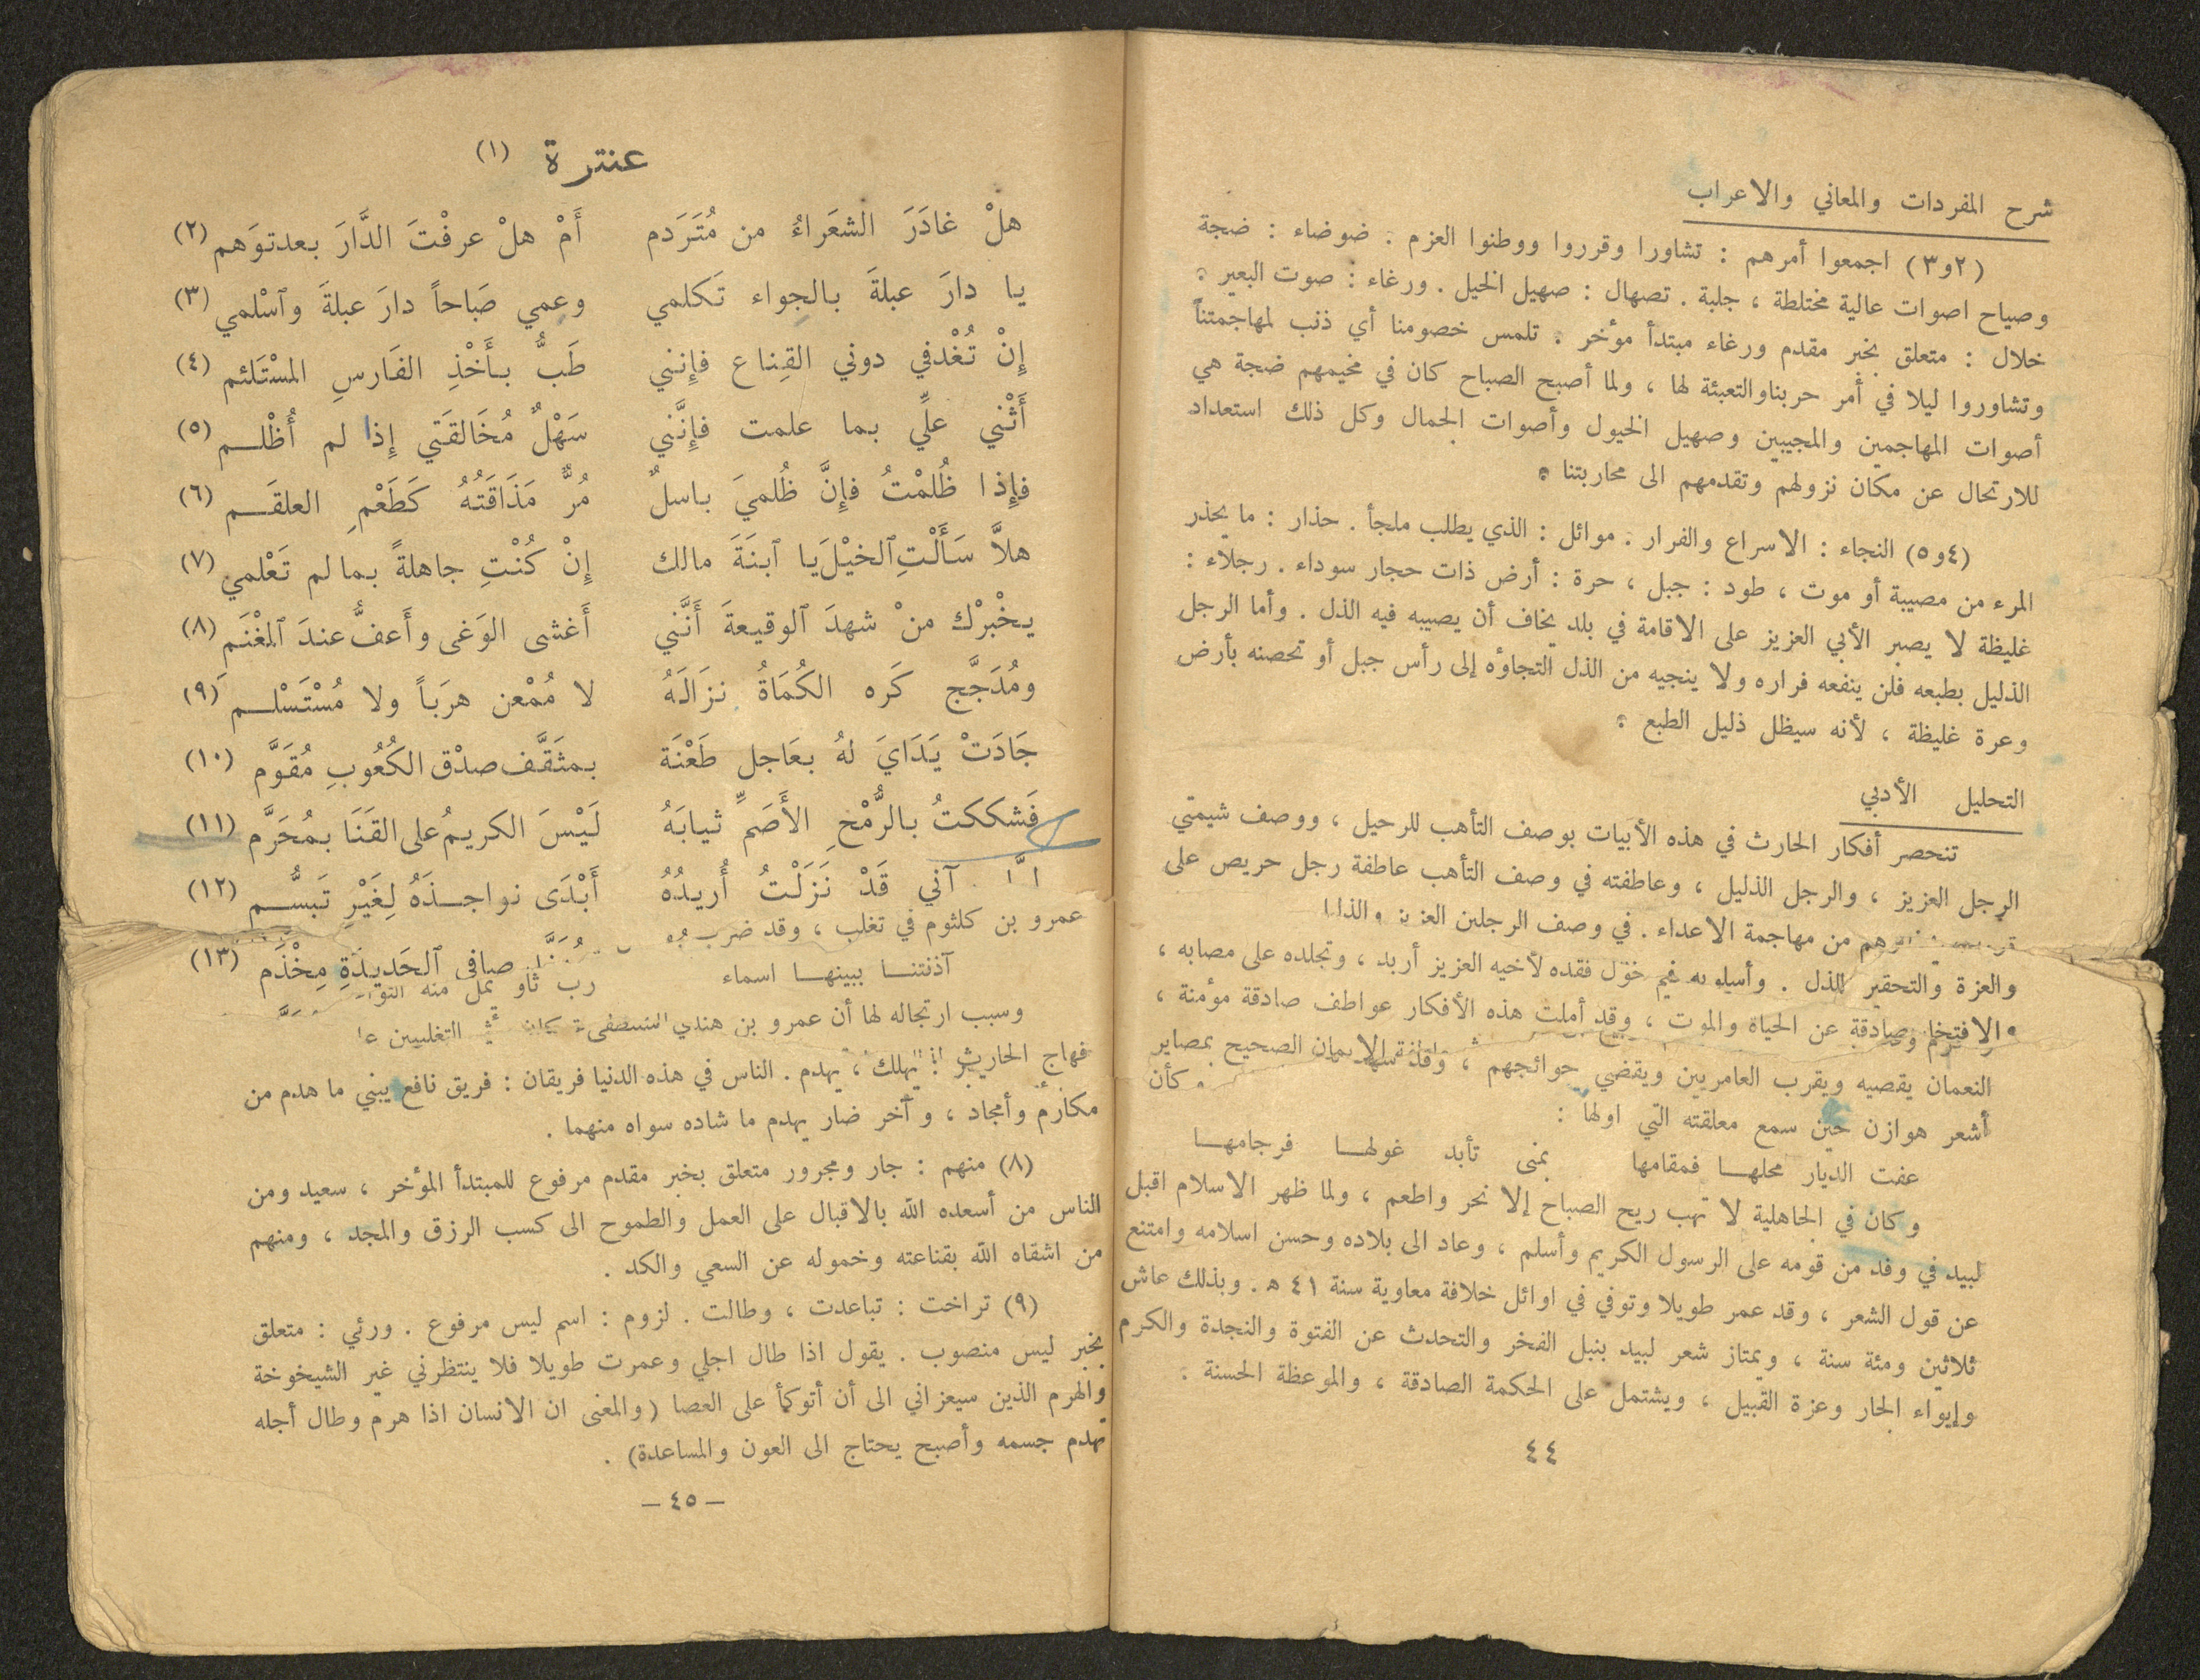 شرح المفردات والمعاني والاعراب
(٢و٣) اجمعوا أمرهم : تشاورا وقرروا ووطنوا العزم . ضوضاء : ضجة
وصياح اصوات عالية مختلطة ، جلبة . تصهال : صهيل الخيل . ورغاء : صوت البعير .
خلال : متعلق بخبر مقدم ورغاء مبتدأ مؤخر . تلمس خصومنا أي ذنب لمهاجمتنا
وتشاوروا ليلا في أمر حربناوالتعبئة لها ، ولما أصبح الصباح كان في مخيمهم ضجة هي
أصوات المهاجمين والمجيبين وصهيل الخيول وأصوات الجمال وكل ذلك استعداد
للارتحال عن مكان نزولهم وتقدمهم الى محاربتنا .
(٤و٥) النجاء : الاسراع والفرار . موائل : الذي يطلب ملجأ . حذار : ما يحذر
المرء من مصيبة أو موت ، طود : جبل ، حرة : أرض ذات حجار سوداء . رجلاء :
غليظة لا يصبر الأبي العزيز على الاقامة في بلد يخاف أن يصيبه فيه الذل . وأما الرجل
الذليل بطبعه فلن ينفعه فراره ولا ينجيه من الذل التجاؤه إلى رأس جبل أو تحصنه بأرض
وعرة غليظة ، لأنه سيظل ذليل الطبع .
التحليل الأدبي
تنحصر أفكار الحارث في هذه الأبيات بوصف التأهب للرحيل ، ووصف شيمتي
الرجل العزيز ، والرجل الذليل ، وعاطفته في وصف التأهب عاطفة رجل حريص على
من مهاجمة الاعداء . في وصف الرجلين العزيز
والعزة والتحقير للذل . فقده لأخيه العزيز أربد ، وتجلده على مصابه ،
عن الحياة والموت ، وقد أملت هذه الأفكار عواطف صادقة مؤمنة ،
الايمان الصحيح بمصاير
النعمان يقصيه ويقرب العامريين ويقضي حوائجهم ، كأن
أشعر هوازن حين سمع معلقته التي اولها :
عفت الديار محلهـــا فمقامها بمنى تأبد غولهـــا فرجامهـــا
وكان في الجاهلية لا تهب ريح الصباح إلا نحر واطعم ، ولما ظهر الاسلام اقبل
لبيد في وفد من قومه على الرسول الكريم وأسلم ، وعاد الى بلاده وحسن اسلامه وامتنع
عن قول الشعر ، وقد عمر طويلا وتوفي في اوائل خلافة معاوية سنة ٤١ ه . وبذلك عاش
ثلاثين ومئة سنة ، ويمتاز شعر لبيد بنبل الفخر والتحدث عن الفتوة والنجدة والكرم
وإيواء الجار وعزة القبيل ، ويشتمل على الحكمة الصادقة ، والموعظة الحسنة .
٤٤
عنترة (١)
هلْ غادَرَ الشعَراءُ من مُتَرَدم أَمْ هلْ عرفْتَ الدَّارَ بعدتوَهم (٢)
يا دارَ عبلةَ بالجواء تَكلمي وعمي صَباحاً دارَ عبلةَ وٱسْلمي (٣)
إِنْ تُغْدفي دوني القِناع فإِنني طَبٌّ بأَخْذِ الفَارسِ المسْتَلئم (٤)
أَثْني علِّي بما علمت فإِنَّني سَهْلٌ مُخَالقَتي إِذا لم أُظْلـــم (٥)
فإِذا ظُلمْتُ فإِنَّ ظُلميَ باسلٌ مُرٌّ مَذَاقَتُهُ كَطَعْمِ العلقَـــم (٦)
هلاَّ سَأَلْتِ ٱلخيْلَ يا ٱبنَةَ مالك إِنْ كُنْتِ جاهلةً بمالم تَعْلمي (٧)
يخْبرْك منْ شهدَ ٱلوقيعةَ أَنَّني أَغشى الوَغى وأَعفُّ عندَ ٱلمغْنَمِ (٨)
ومُدَجَّج كَره الكُمَاةُ نزَالَهُ لا مُمْعن هرَباً ولا مُسْتَسْلـــم (٩)
جَادَتْ يَدَايَ لهُ بعَاجل طَعْنَة بمثَقَّف صدْق الكُعُوبِ مُقَوَّم (١٠)
فَشككتُ بالرُّمْحِ الأَصَمِّ ثيابَهُ لَيْسَ الكريمُ على القَنَا بمُحَرَّم (١١)
آني قَدْ نَزَلْتُ أُريدُهُ أَبْدَى نواجـــذَهُ لِغَيْرِ تَبسُّـــم (١٢)
عمرو بن كلثوم في تغلب ، وقد ضرب
صافي ٱلحَديدَةِ مِخْذَم (١٣)
آذنتنـــا ببينهـــا اسماء رب ثاو يمل منه
وسبب ارتجاله لها أن عمرو بن هند التغلبيين
فهاج الحارث يهلك ، يهدم . الناس في هذه الدنيا فريقان : فريق نافع يبني ما هدم من
مكارم وأمجاد ، وآخر ضار يهدم ما شاده سواه منهما .
(٨) منهم : جار ومجرور متعلق بخبر مقدم مرفوع للمبتدأ المؤخر ، سعيد ومن
الناس من أسعده الله بالاقبال على العمل والطموح الى كسب الرزق والمجد ، ومنهم
من اشقاه الله بقناعته وخموله عن السعي والكد .
(٩) تراخت : تباعدت ، وطالت . لزوم : اسم ليس مرفوع . ورئي : متعلق
بخبر ليس منصوب . يقول اذا طال اجلي وعمرت طويلا فلا ينتظرني غير الشيخوخة
والهرم الذين سيعزاني الى أن أتوكأ على العصا (والمغنى ان الانسان اذا هرم وطال أجله
تهدم جسمه وأصبح يحتاج الى العون والمساعدة) .
– ٤٥ –